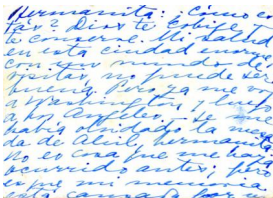 Hermanita: ¿Cómo es-
tás? Dios te cobije y
te conserve. Mi salud
en esta ciudad enorme,
con un mundo de
no puede ser
buena. Pero ya me voy
a Washington y luego
a Los Angeles. Se me
había olvidado la
da de Abril, hermanita
no es cosa que me haya
ocurrido antes, pero
es que mi memoria
está cansada por